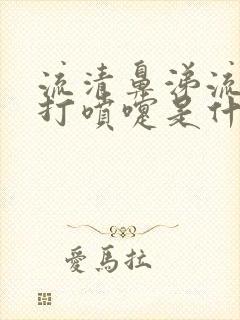 流清鼻涕流
打噴嚏是什
愛馬拉